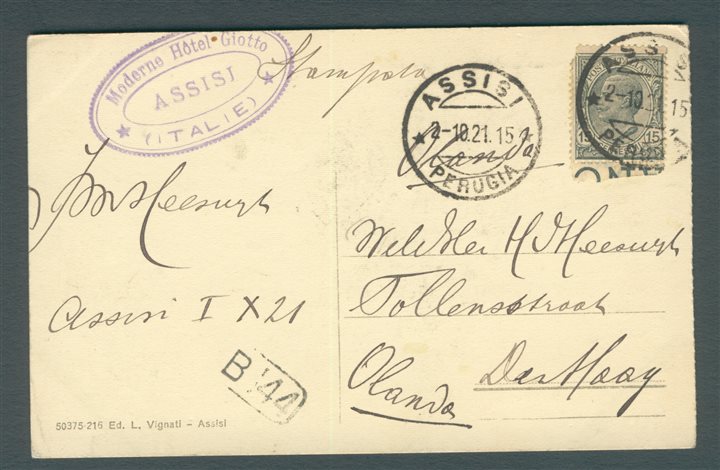 Moderne Hôtel Giotto
ASSISI
(ITALIE)
Stampata
ASSISI
2-10.21.15
PERUGIA
Olanda
ASSISI
2-10.21.15
PERUGIA
15 15
Assisi I X 21
B 44
H J Heeswyk
Tollensstraat
Den Haag
Olanda
50375-216 Ed. L. Vignati - Assisi